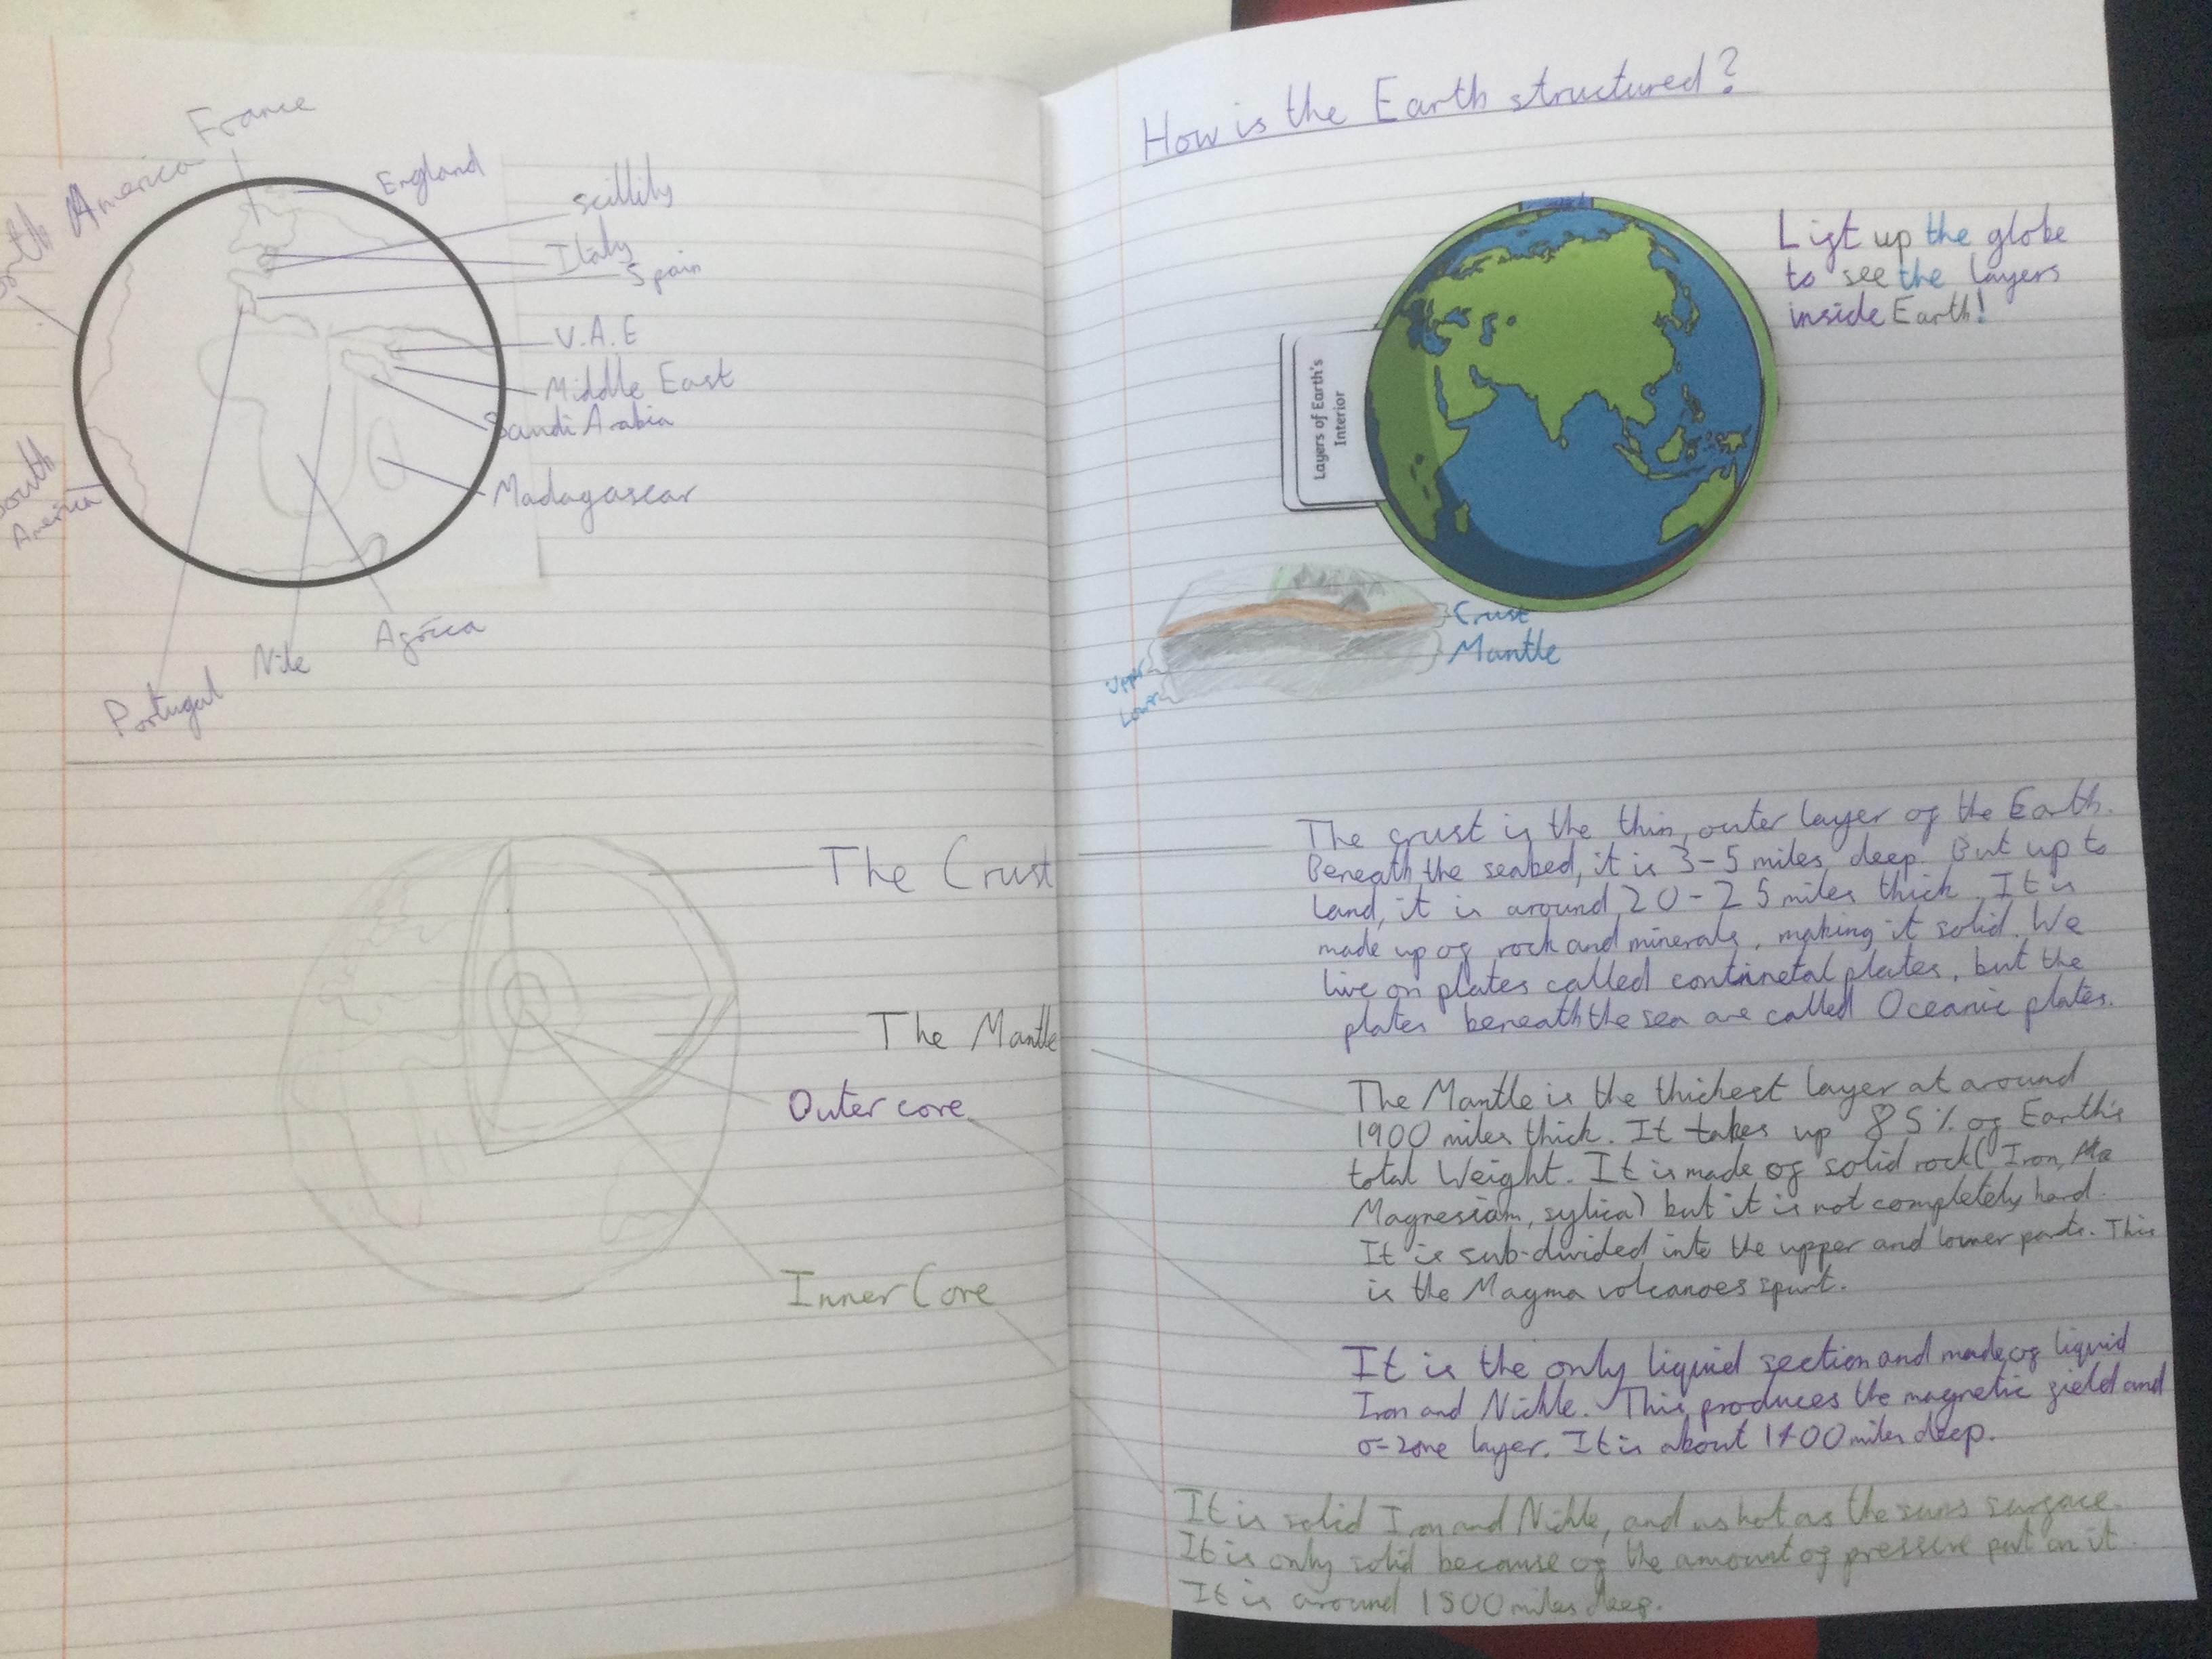 France
North America
England
Scillily
Italy
Spain
U.A.E
Middle East
Saudi Arabia
Madagascar
South
America
Africa
Nile
Portugal
The Crust
The Mantle
Outer core
Inner Core
How is the Earth structured?
Lift up the globe
to see the layers
inside Earth!
Layers of Earth's
Interior
Crust
Mantle
Upper
Lower
The crust is the thin, outer layer of the Earth.
Beneath the seabed, it is 3-5 miles deep. But up to
land, it is around 20-25 miles thick. It is
made up of rock and minerals, making it solid. We
live on plates called continetal plates, but the
plates beneath the sea are called Oceanic plates.
The Mantle is the thichest layer at around
1900 miles thick. It takes up 85% of Earth's
total Weight. It is made of solid rock( Iron,
Magnesiam, sylica) but it is not completely hard.
It is sub-divided into the upper and lower parts. This
is the Magma volcanoes spurt.
It is the only liquid section and made of liquid
Iron and Nickle. This produces the magnetic field and
o-zone layer. It is about 1400 miles deep.
It is solid Iron and Nickle, and as hot as the suns surface.
It is only solid because of the amount of pressure put on it.
It is around 1500 miles deep.